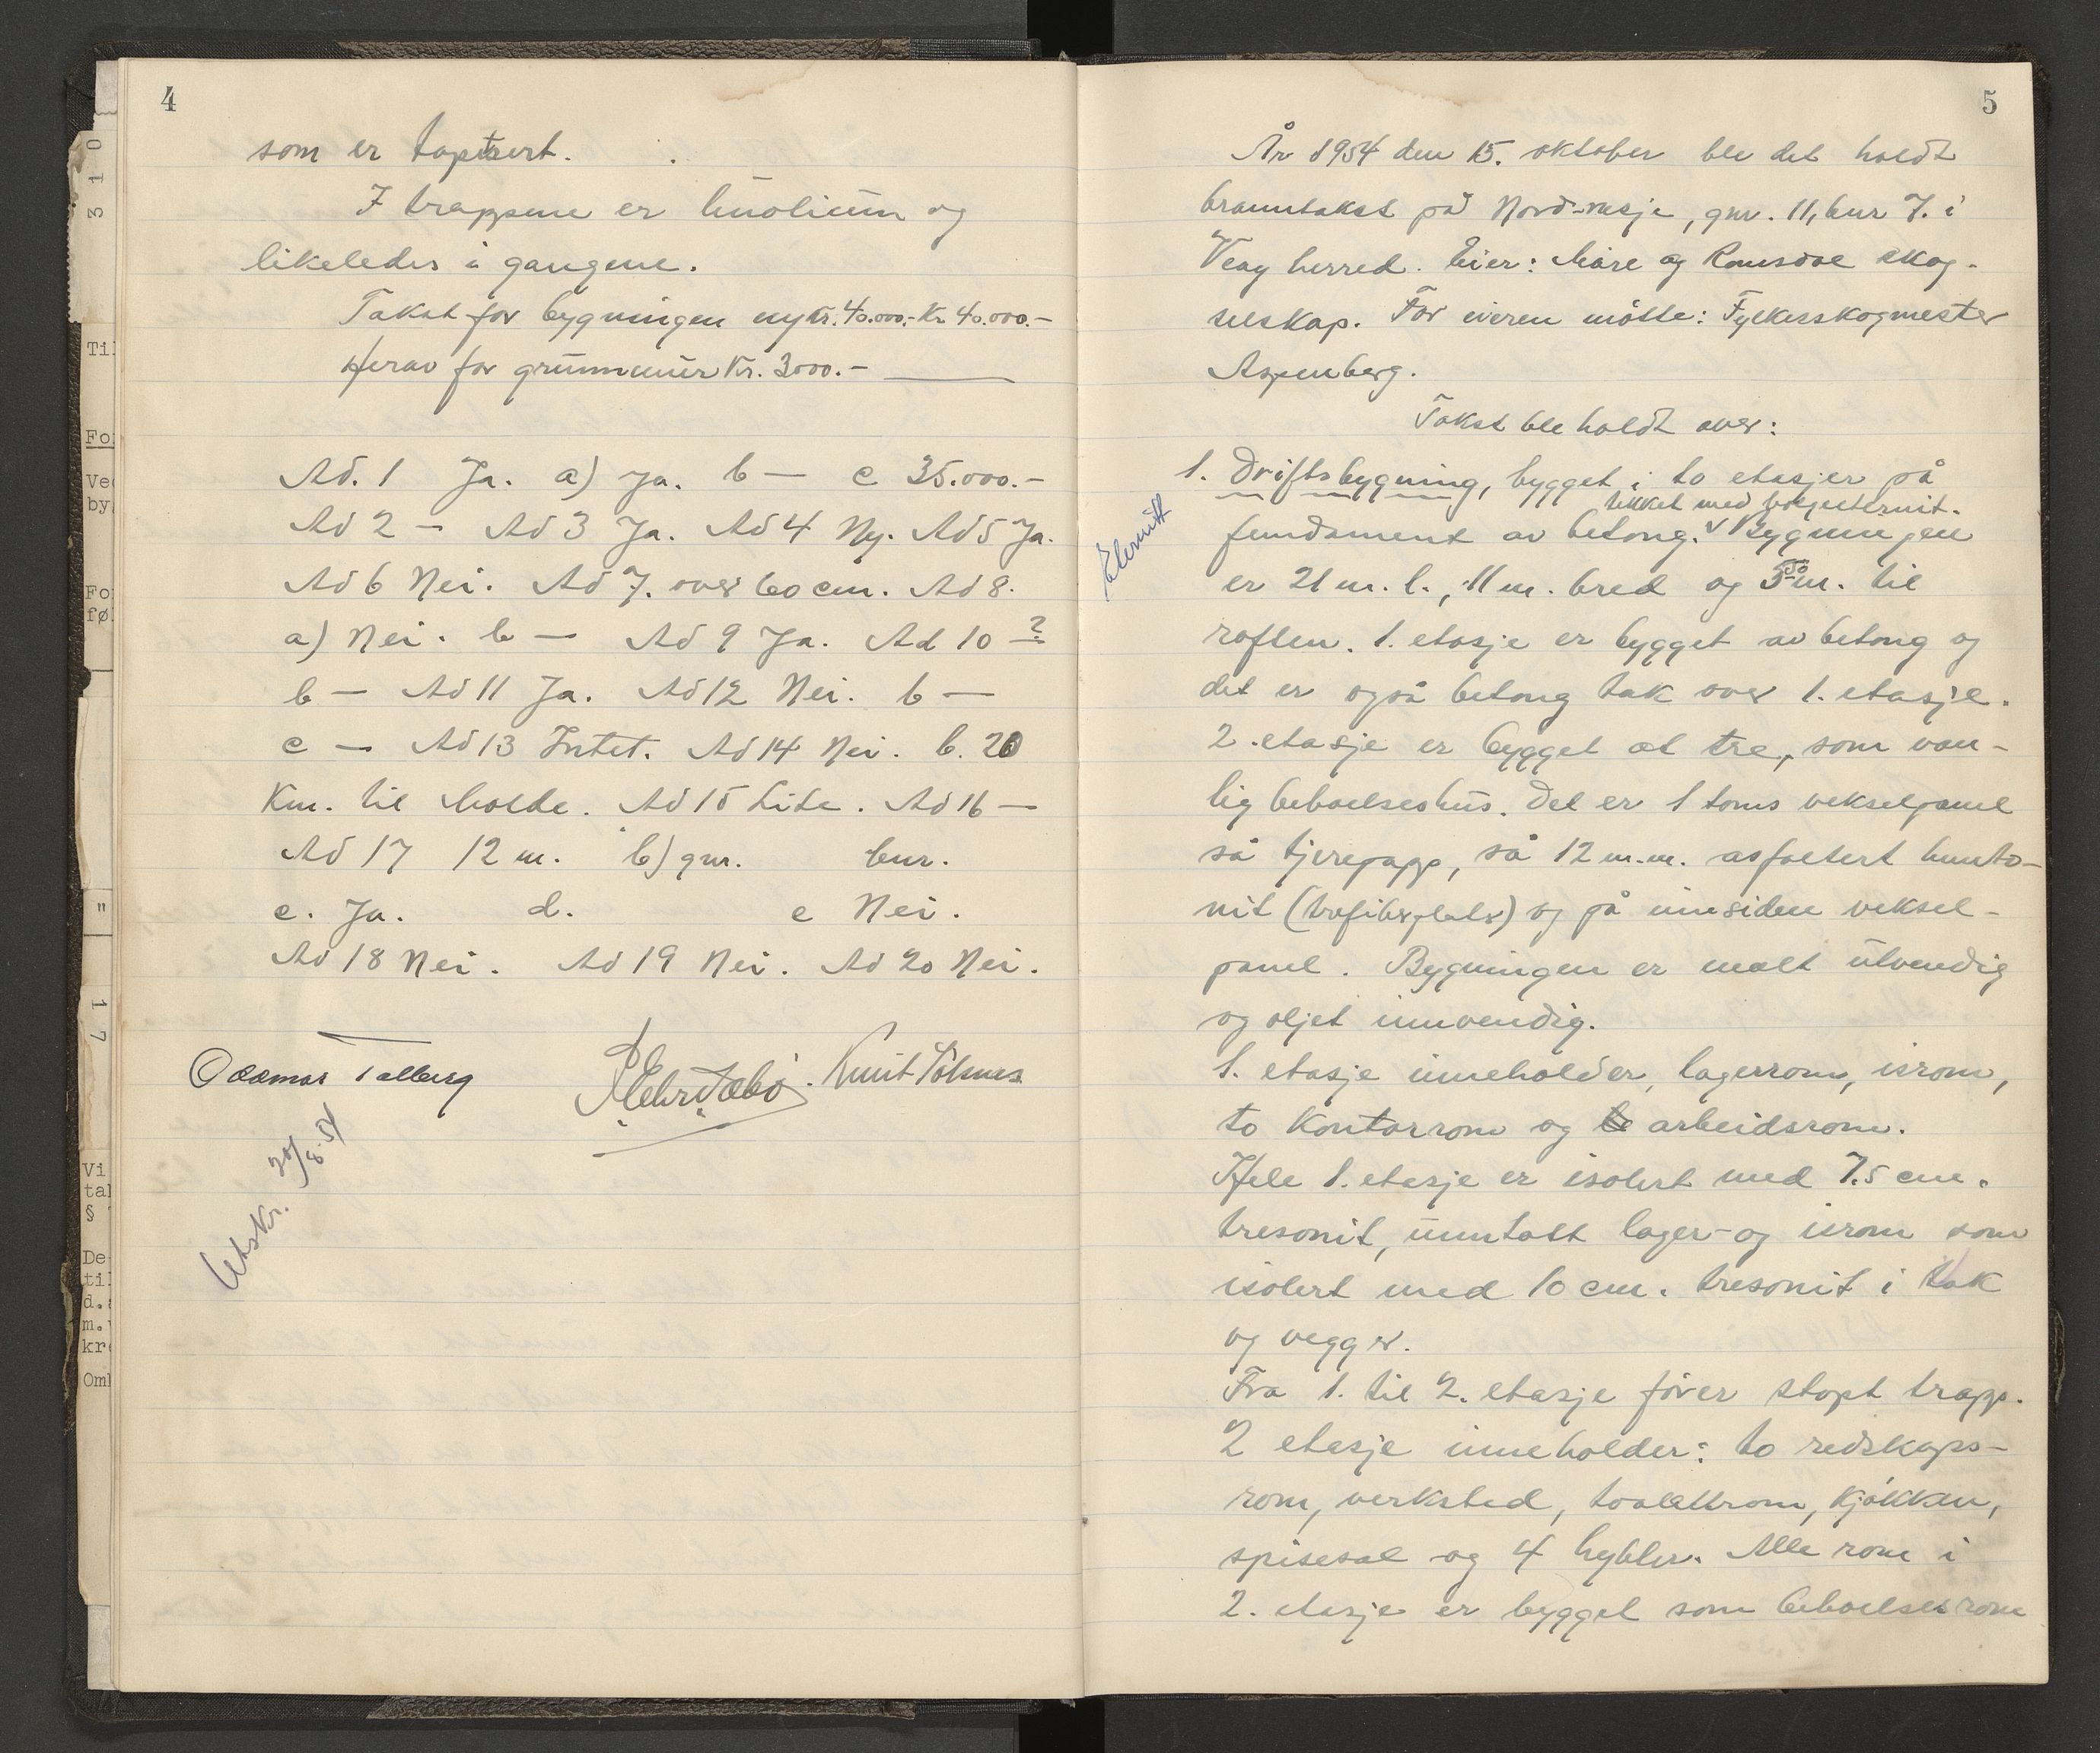 4
som er tapetsert.
I trappene er linolium og
likeledes i gangene.
Takst for bygningen ny kr. 40.000.- Kr 40.000.-
Herav for grunnmur Kr. 3000.-
Ad. 1 Ja. a) Ja. b — c 35.000.-
Ad 2 — Ad 3 Ja. Ad 4 Ny. Ad 5 Ja.
Ad 6 Nei. Ad 7. over 60 cm. Ad 8.
a) Nei. b — Ad 9 Ja. Ad 10 ?
b — Ad 11 Ja. Ad 12 Nei. b —
c — Ad 13 Intet. Ad 14 Nei. b. 20
Km. til Molde. Ad 15 Lite. Ad 16 —
Ad 17 12 m. b) gnr. bnr.
c. Ja. d. e Nei.
Ad 18 Nei. Ad 19 Nei. Ad 20 Nei.
Oddmar Talberg Knut Sølsnes
Utskr. 20/8-54
5
År 1954 den 15. oktober ble det holdt
branntakst på Nord-nesje, gnr. 11, bnr 7. i
Veøy herred. Eier: Møre og Romsdal skog-
selskap. For eieren møtte: Fylkesskogmester
Aspenberg.
Takst ble holdt over:
1. Driftsbygning, bygget i to etasjer på
tekket med bølgeeternit.
fundament av betong. v Bygningen
Eternitt
er 21 m. l., 11 m. bred og 5 50 m. til
raften. 1. etasje er bygget av betong og
det er også betong tak over 1. etasje.
2. etasje er bygget at tre, som van-
lig beboelseshus. Det er 1 toms vekselpanel
så tjærepapp, så 12 m.m. asfaltert hunto-
nit (trefiberplater) og på innsiden veksel-
panel. Bygningen er malt utvendig
og oljet innvendig.
1. etasje inneholder, lagerrom, isrom,
to kontorrom og arbeidsrom.
Hele 1. etasje er isolert med 7.5 cm.
tresonit, unntatt lager- og isrom som
isolert med 10 cm. tresonit i tak
og vegger.
Fra 1. til 2. etasje fører støpt trapp.
2 etasje inneholder: to redskaps-
rom, verksted, toalettrom, kjøkken,
spisesal og 4 hybler. Alle rom i
2. etasje er bygget som beboelsesrom